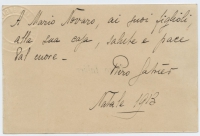 A Mario Novaro, ai suoi figlioli,
alla sua casa, salute e pace
dal cuore -
Piero Jahier
Natale 1913